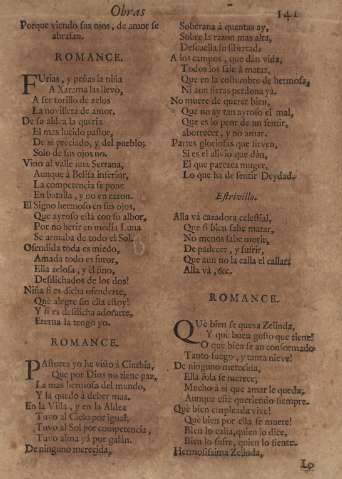 Obras
141
Porque viendo sus ojos, de amor se
abrasan.
ROMANCE.
FUrias, y penas la niña
A Xarama las llevò,
A ser torillo de zelos
La novillera de amor.
De so aldea la queria
El mas lucido pastor,
De si preciado, y del pueblo;
Solo de sus ojos no.
Vino al valle una Serrana,
Aunque à Belisa inferior,
La competencia se pone
En batalla, y no en razon.
El Signo hermoso en sus ojos,
Que ayroso està con su albor,
Por no herir en media Luna
Se armaba de todo el Sol.
Ofendida toda es miedo,
Amada todo es furor,
Ella zelosa, y èl fino,
Desdichados de los dos!
Niña si es dicha ofenderte,
Què alegre sin ella estoy!
Y si es desdicha adorarte,
Eterna la tengo yo.
ROMANCE.
PAstores yo he visto à Cinthia,
Que por Dios no tiene par,
La mas hermosa del mundo,
Y la quedo à deber mas.
En la Villa, y en la Aldea
Tuvo al Cielo por igual,
Tuvo al Sol por competencia,
Tuvo alma yà por galàn.
De ninguno merecida,
Soberana à quantas ay,
Sobre la razon mas alta,
Descuella su libertad.
A los campos, que dàn vida,
Todos los sale à matar,
Que en la costumbre de hermosa,
Ni aun fieras perdona yà.
No muere de querer bien,
Que no ay tan ayroso el mal,
Que es lo peor de un sentir,
aborrecer, y no amar.
Partes gloriosas que sirven,
Si es el alivio que dàn,
El que parezca muger,
Lo que ha de sentir Deydad.
Estrivillo.
Allà và cazadora celestial,
Que si bien sabe matar,
No menos sabe morir,
De padecer, y sufrir,
Que aun no la calla el callar;
Allà và, &c.
ROMANCE.
QUè bien se quexa Zelinda,
Y què buen gusto que tiene!
O que bien se an conformado
Tanto fuego, y tanta nieve!
De ninguno merecida,
Ella sola se merece,
Mucho à si que amar le queda,
Aunque estè queriendo siempre.
Què bien empleada vive!
Què bien por ella se muere!
Bien lo calla, quien lo dice,
Bien lo sufre, quien lo siente.
Hermosissima Zelinda,
Lo